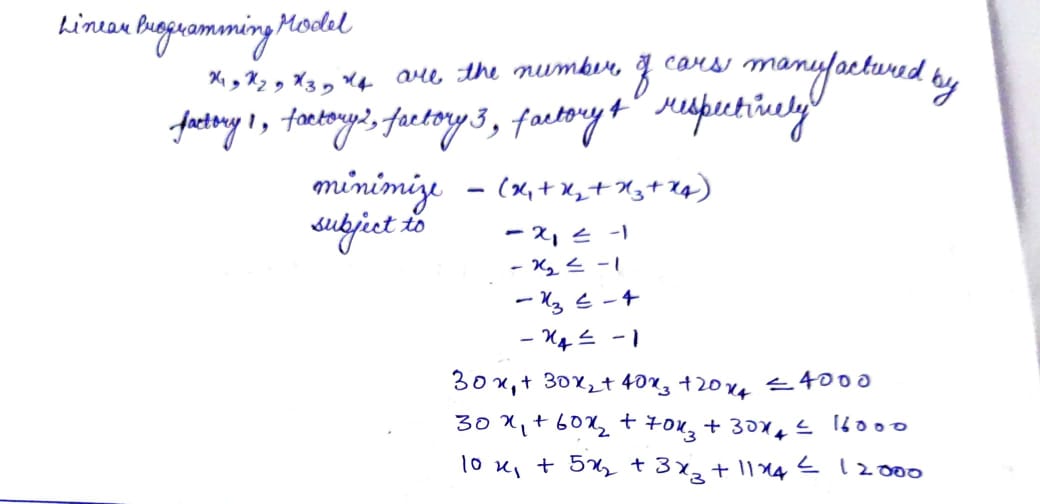 Linear Programming Model
x₁, x₂, x₃, x₄ are the number of cars manufactured by
factory 1, factory 2, factory 3, factory 4 respectively
minimize - (x₁ + x₂ + x₃ + x₄)
subject to
- x₁ ≤ -1
- x₂ ≤ -1
- x₃ ≤ -4
- x₄ ≤ -1
30x₁ + 30x₂ + 40x₃ + 20x₄ ≤ 4000
30x₁ + 60x₂ + 70x₃ + 30x₄ ≤ 16000
10x₁ + 5x₂ + 3x₃ + 11x₄ ≤ 12000